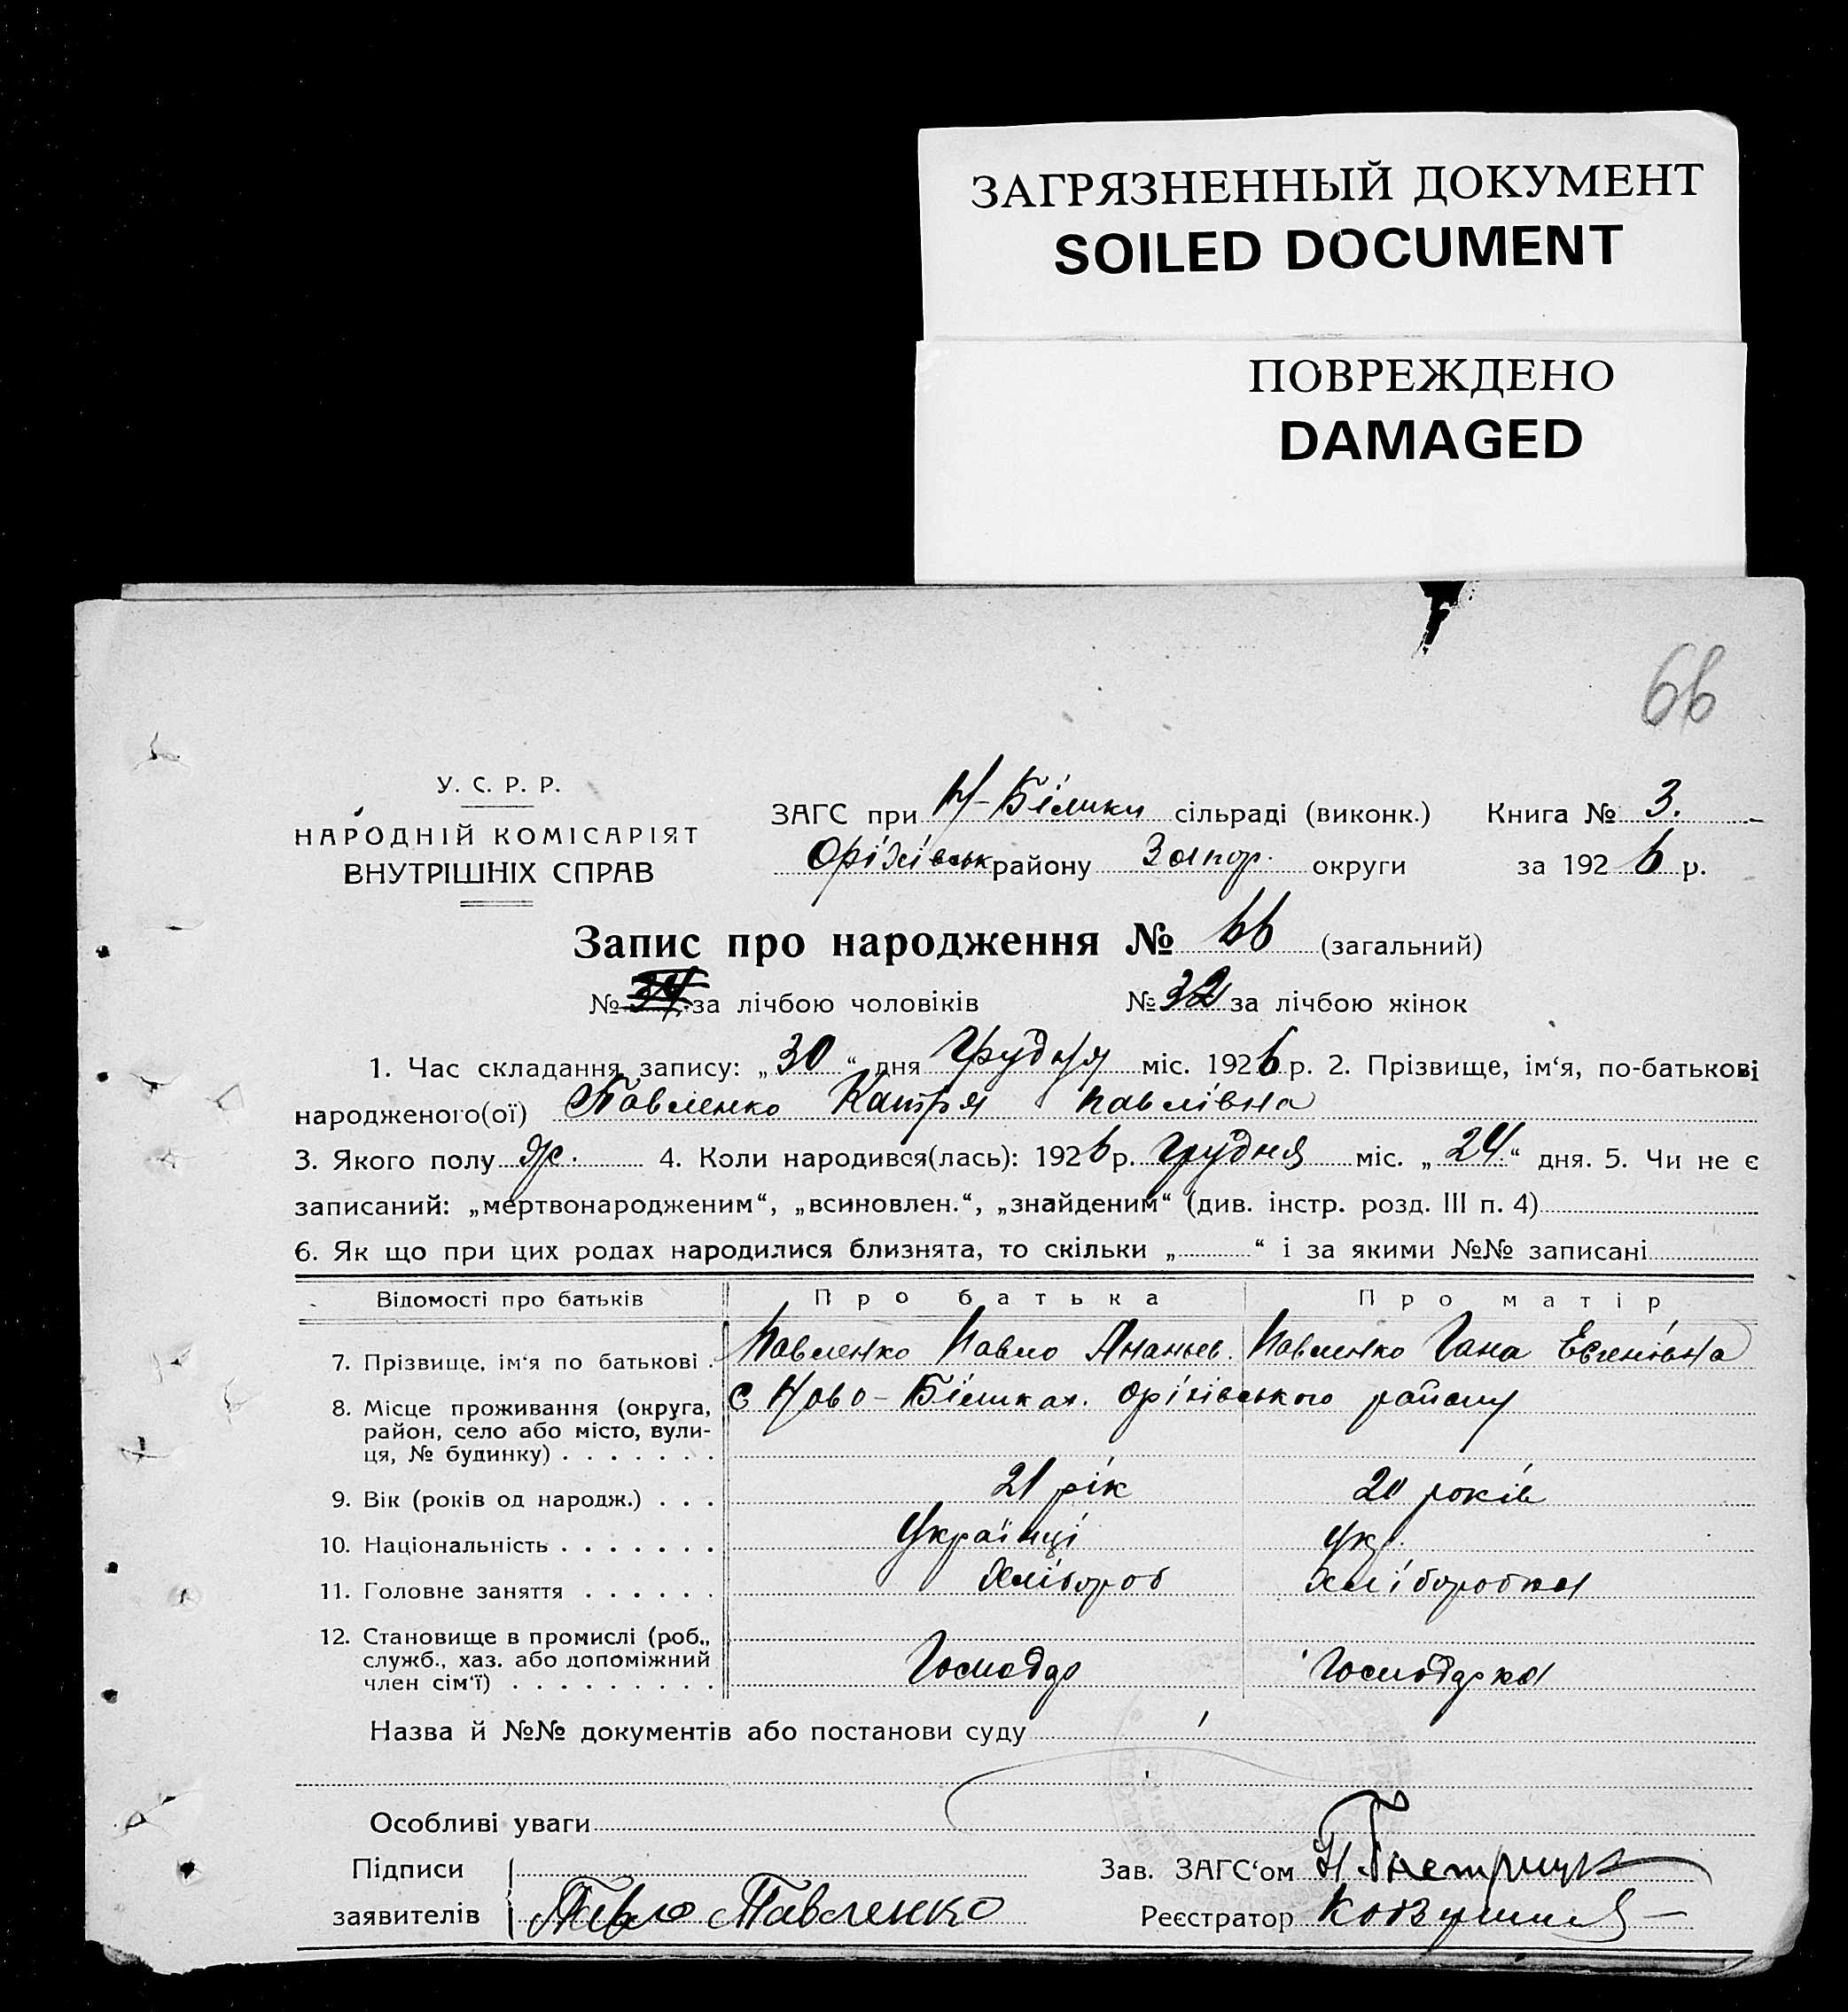 ЗАГРЯЗНЕННЫЙ ДОКУМЕНТ
SOILED DOCUMENT
ПОВРЕЖДЕНО
DAMAGED
66
У. С. Р. Р.
НАРОДНІЙ КОМІСАРІЯТ
ВНУТРІШНІХ СПРАВ
ЗАГС при Н-Білики сільраді (виконк.) Книга № 3.
Оріхівськ району Запор. округи за 1926 р.
Запис про народження № 66 (загальний)
№ 34 за лічбою чоловіків № 32 за лічбою жінок
1. Час складання запису: „30“ дня Грудня міс. 1926 р. 2. Прізвище, ім‘я, по-батькові
народженого(ої) Павленко Катря Павлівна
3. Якого полу ж. 4. Коли народився(лась): 1926 р. грудня міс. „24“ дня. 5. Чи не є
записаний: „мертвонародженим“, „всиновлен.“, „знайденим“ (див. інстр. розд. III п. 4)
6. Як що при цих родах народилися близнята, то скільки „ “ і за якими №№ записані
Відомості про батьків Про батька Про матір
7. Прізвище, ім‘я по батькові . Павленко Павло Ананьев. Павленко Гана Евгенівна
8. Місце проживання (округа, район, село або місто, вулиця, № будинку) . . . . . . . С Ново-Біликах. Оріхівського району
9. Вік (років од народж.) . . . 21 рік 20 років
10. Національність . . . . . . . Українці укр.
11. Головне заняття . . . . . . Хлібороб Хліборобка
12. Становище в промислі (роб., служб., хаз. або допоміжний член сім‘ї) . . . . . . . . . Господар Господарка
Назва й №№ документів або постанови суду
Особливі уваги
Підписи Зав. ЗАГС‘ом
заявителів Павло Павленко Реєстратор